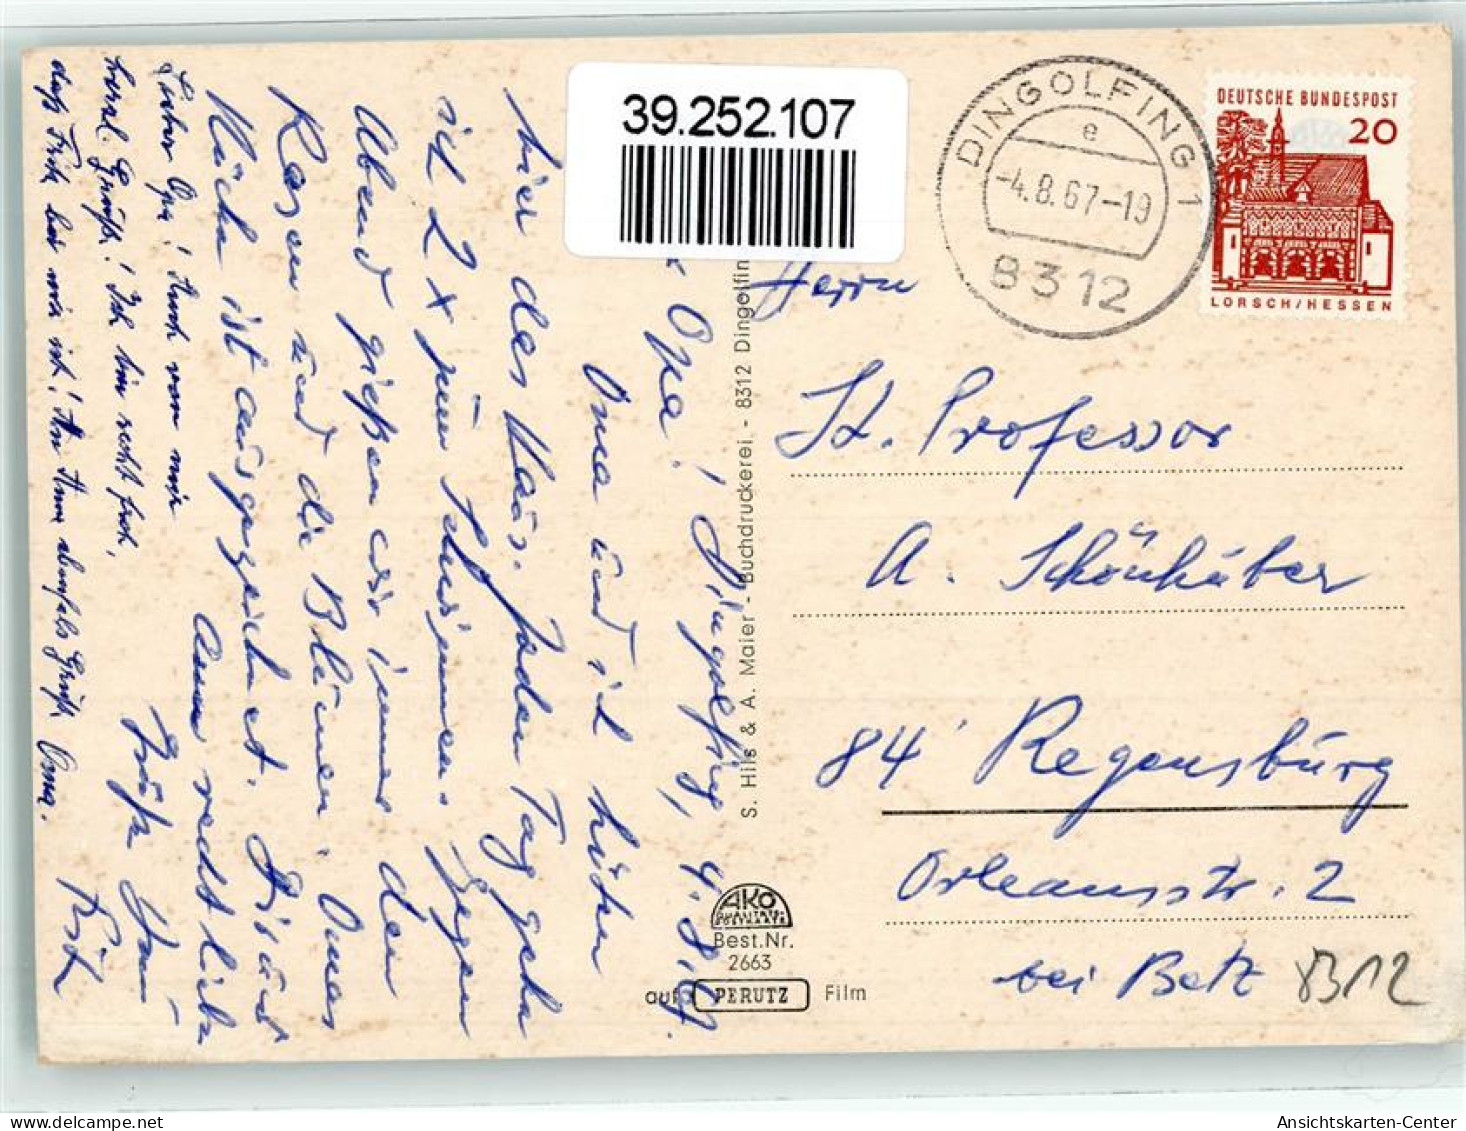 39.252.107
DINGOLFING 1
e
-4.8.67-19
8312
DEUTSCHE BUNDESPOST
20
LORSCH/HESSEN
Herrn
St. Professor
A. Schönhuber
84 Regensburg
Orleansstr. 2
bei Betz
8312
S. Hils & A. Maier - Buchdruckerei - 8312 Dingolfin
AKO
QUALITÄTS-
POSTKARTE
Best.Nr.
2663
auf PERUTZ Film
Dingolfing, 4.8.67.
Opa!
Oma und ich hüten
hier das Haus. Jeden Tag gehe
ich 2 x zum Schwimmen. Gegen
Abend gießen wir immer den
Rasen und die Blumen. Omas
Küche ist ausgezeichnet.
recht liebe
Grüße Dein
Fritz
Lieber Opa! Auch von mir
herzl. Grüße! Ich bin recht froh,
daß Fritz bei mir ist! An Anne ebenfalls Grüße, Oma.
Ansichtskarten-Center